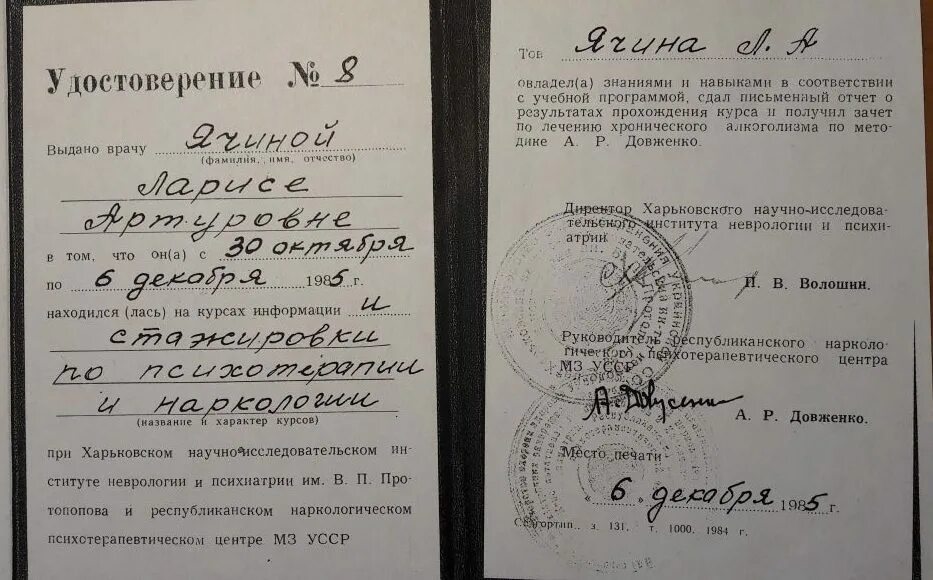 Удостоверение № 8
Выдано врачу Ячиной
(фамилия, имя, отчество)
Ларисе
Артуровне
в том, что он(а) с 30 октября
по 6 декабря 1985 г.
находился (лась) на курсах информации и
стажировки
по психотерапии
и наркологии
(название и характер курсов)
при Харьковском научно-исследовательском ин-
ституте неврологии и психиатрии им. В. П. Про-
топопова и республиканском наркологическом
психотерапевтическом центре МЗ УССР
Тов Ячина Л. А
овладел(а) знаниями и навыками в соответствии
с учебной программой, сдал письменный отчет о
результатах прохождения курса и получил зачет
по лечению хронического алкоголизма по мето-
дике А. Р. Довженко.
Директор Харьковского научно-исследова-
тельского института неврологии и психи-
атрии
П. В. Волошин.
Руководитель республиканского нарколо-
гического психотерапевтического центра
МЗ УССР
А. Р. Довженко.
Место печати
6 декабря 1985 г.
з. 131. т. 1000. 1984 г.